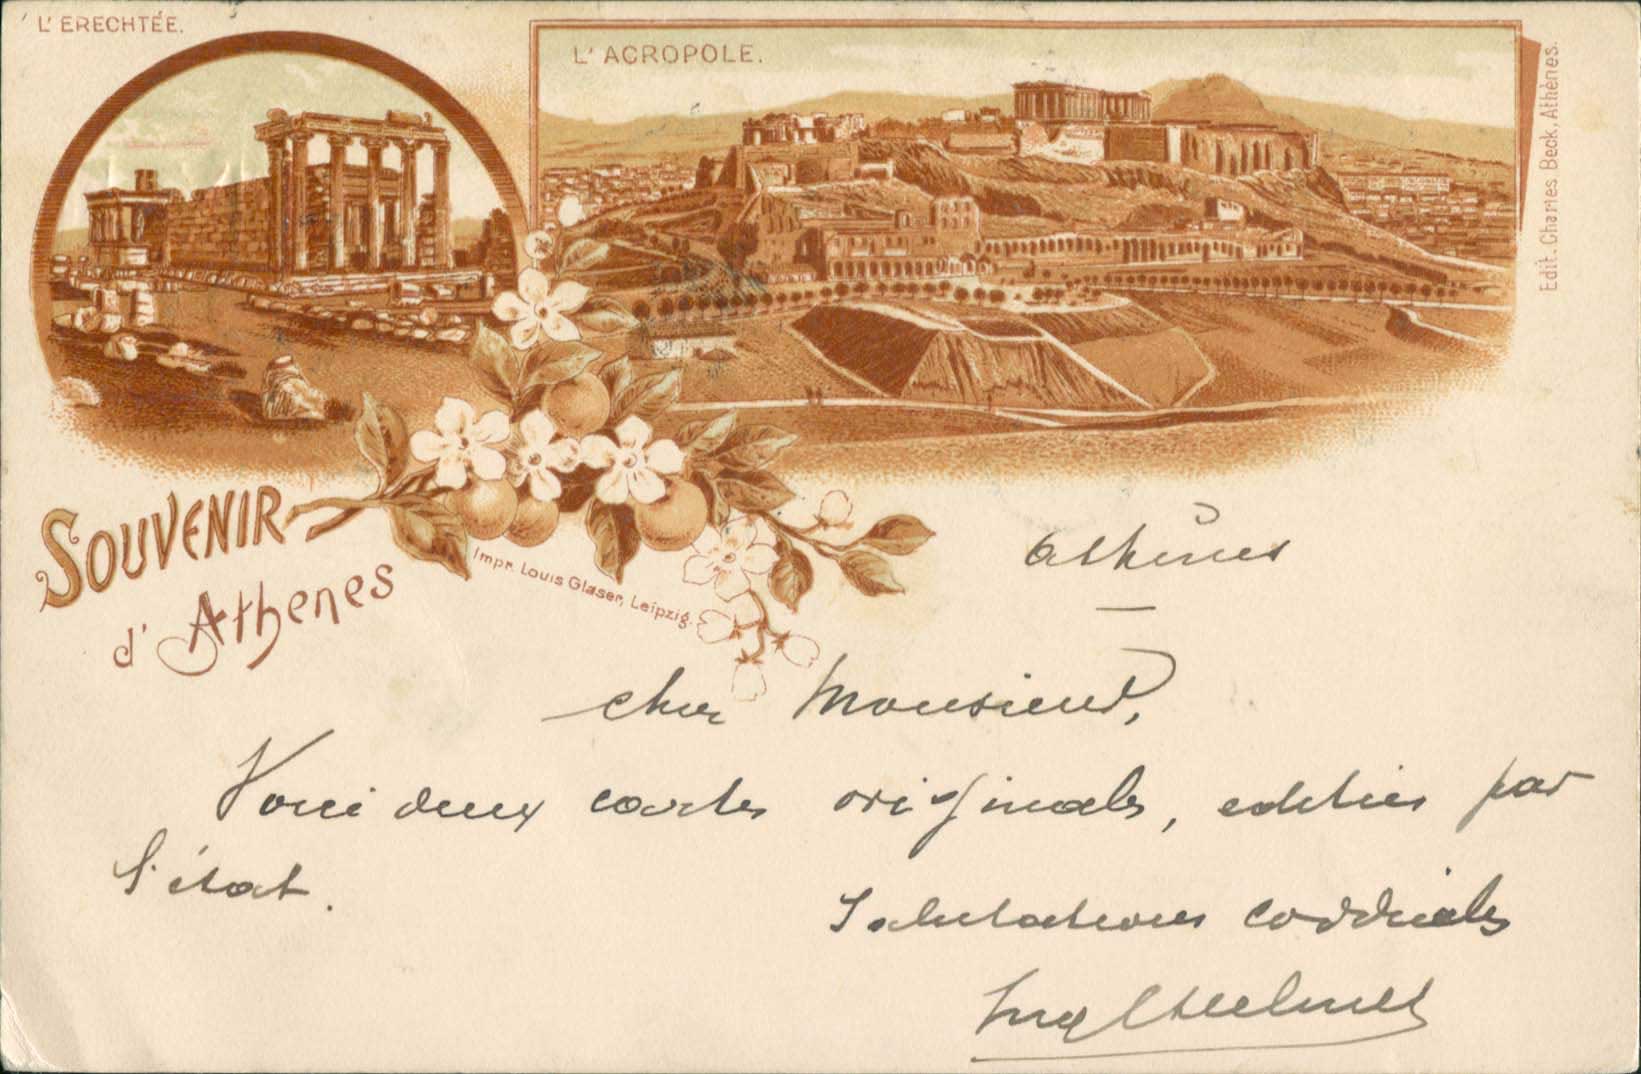 L'ERECHTÉE.
L'ACROPOLE.
Edit. Charles Beck, Athènes.
SOUVENIR
d'Athenes
Impr. Louis Glaser, Leipzig.
Athènes
cher Monsieur,
Voici deux cartes originales, editées par
l'état.
Salutations cordiales